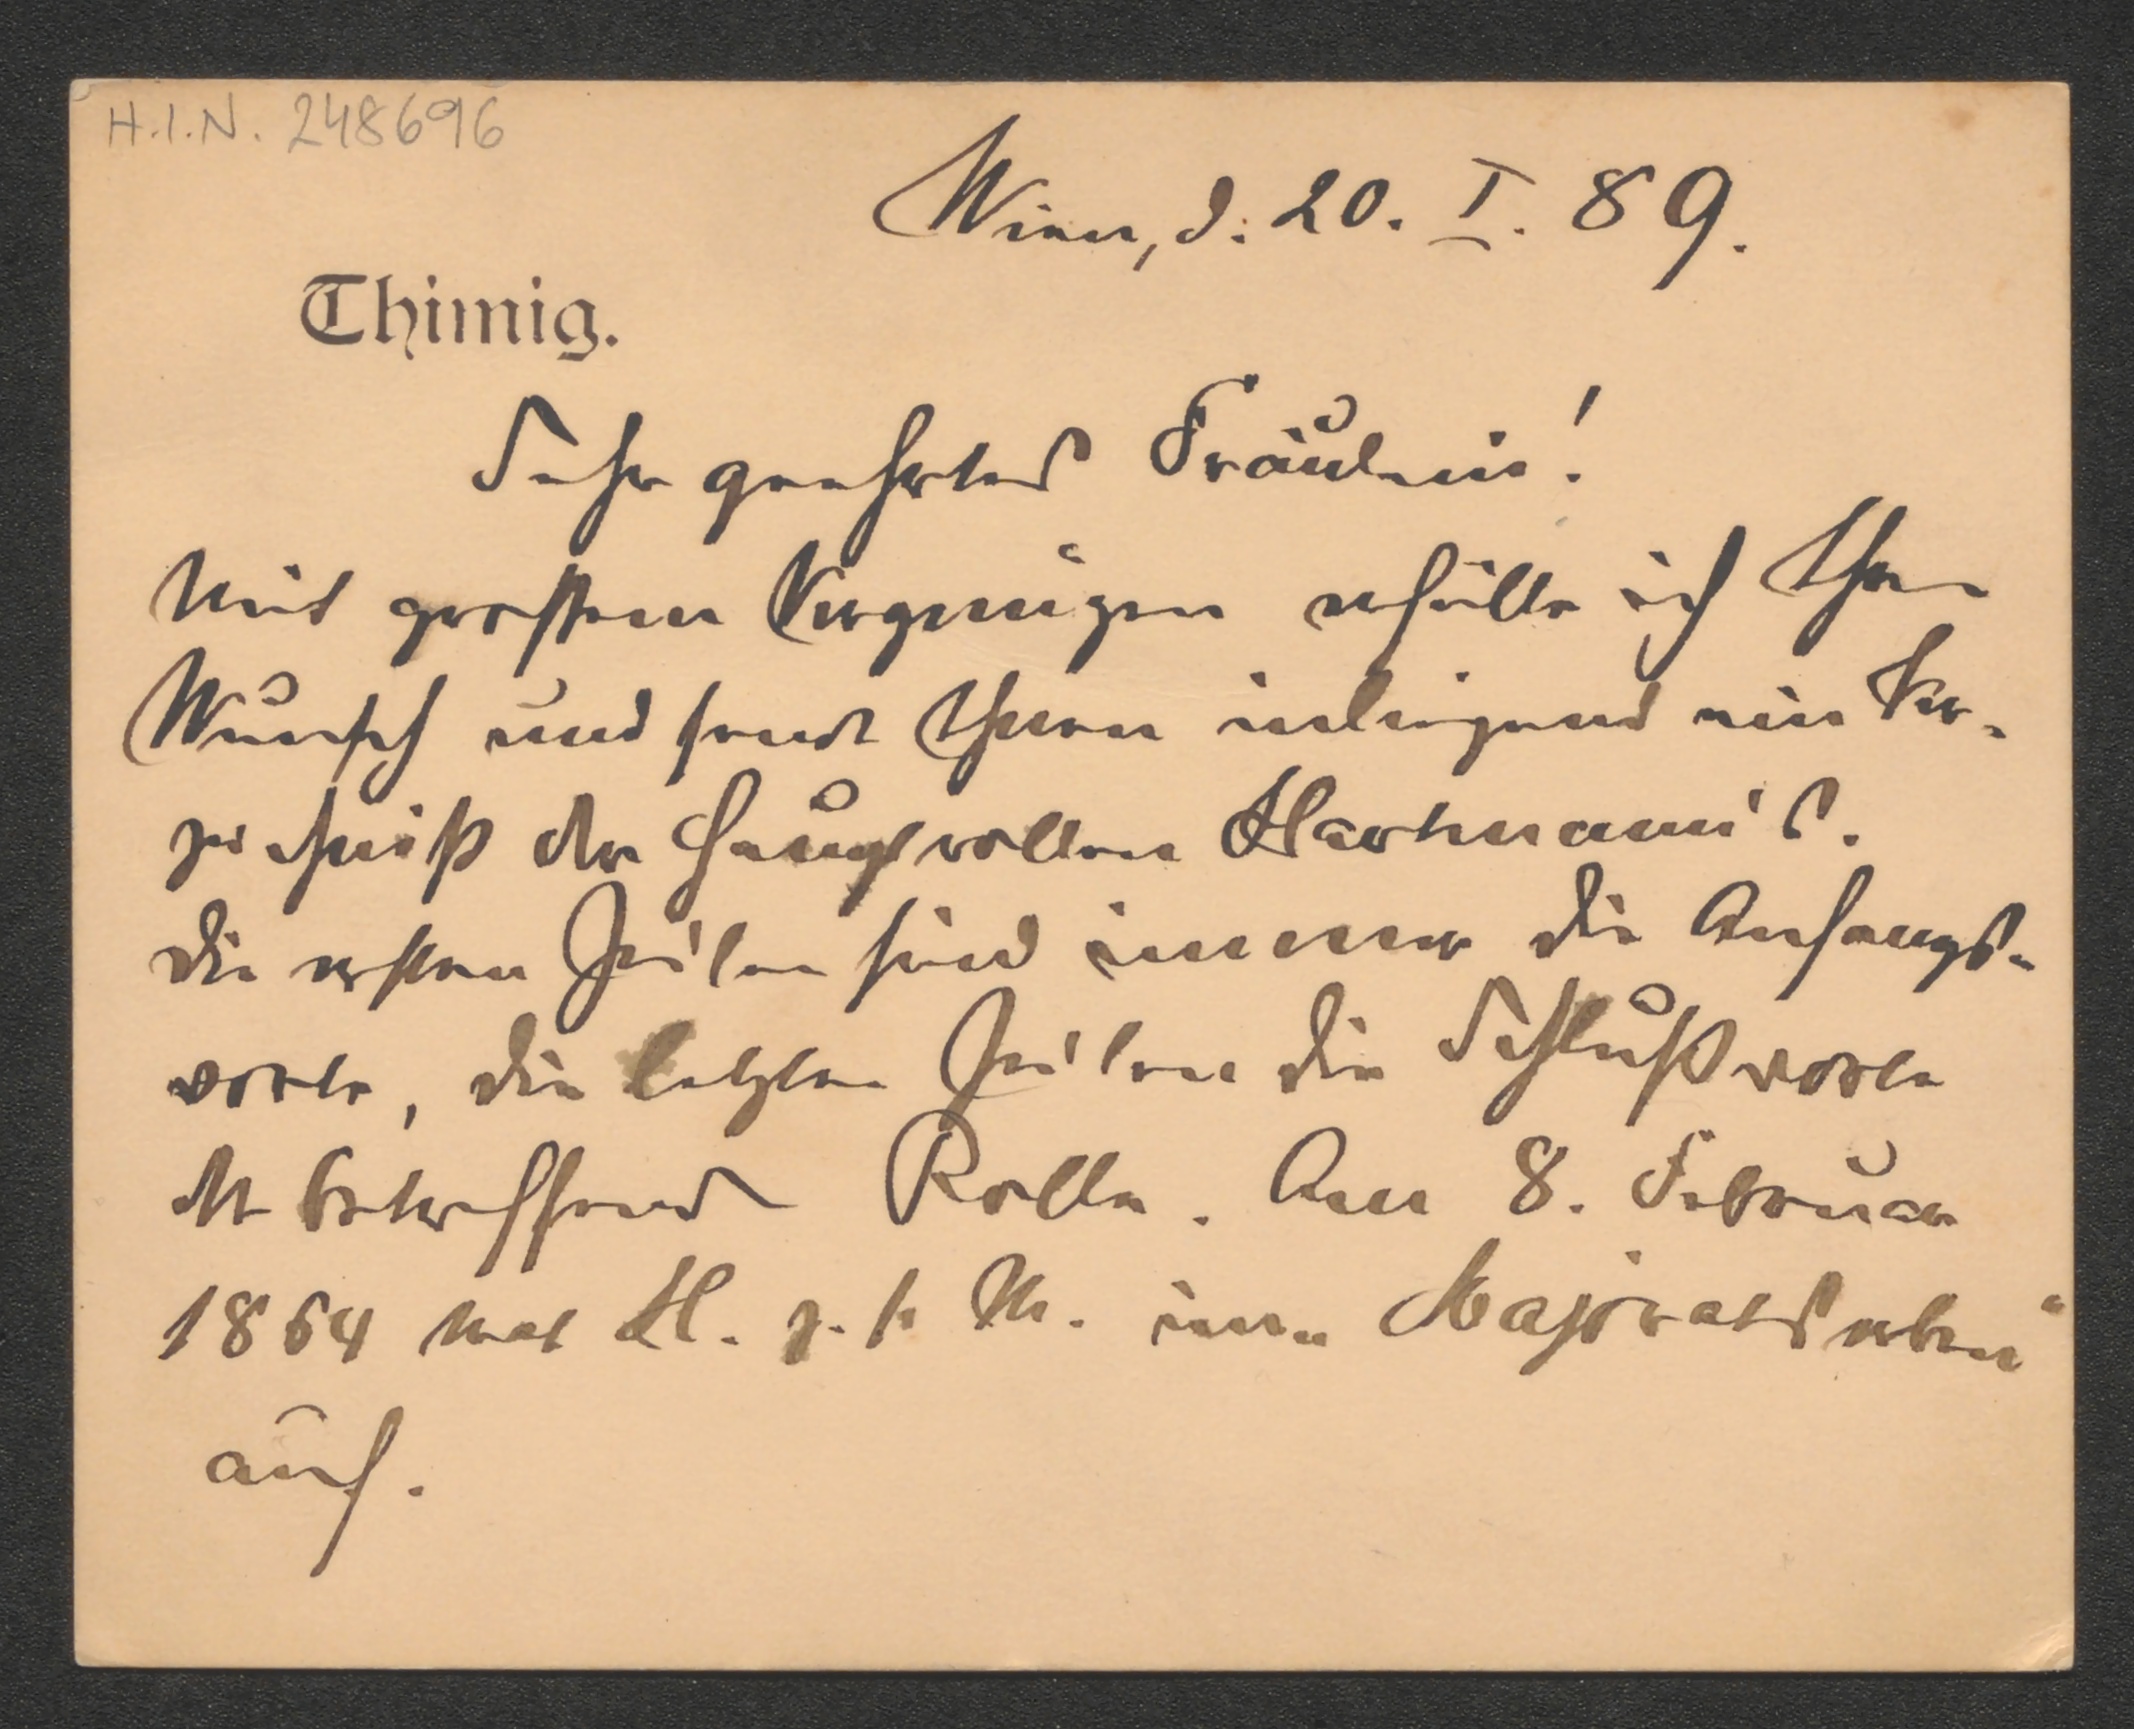 H.I.N. 248696
Wien, d. 20. I. 89.
Thimig.
Sehr geehrtes Fräulein!
Mit großem Vergnügen erfülle ich Ihren
Wunsch und sende Ihnen inliegend ein Ver-
zeichniß der Hauptrollen Hartmann's.
Die ersten Zeilen sind immer die Anfangs-
worte, die letzten Zeilen die Schlußworte
der betreffenden Rolle. Am 8. Februar
1864 trat H. z. 1. M. im „Majoratserben"
auf.